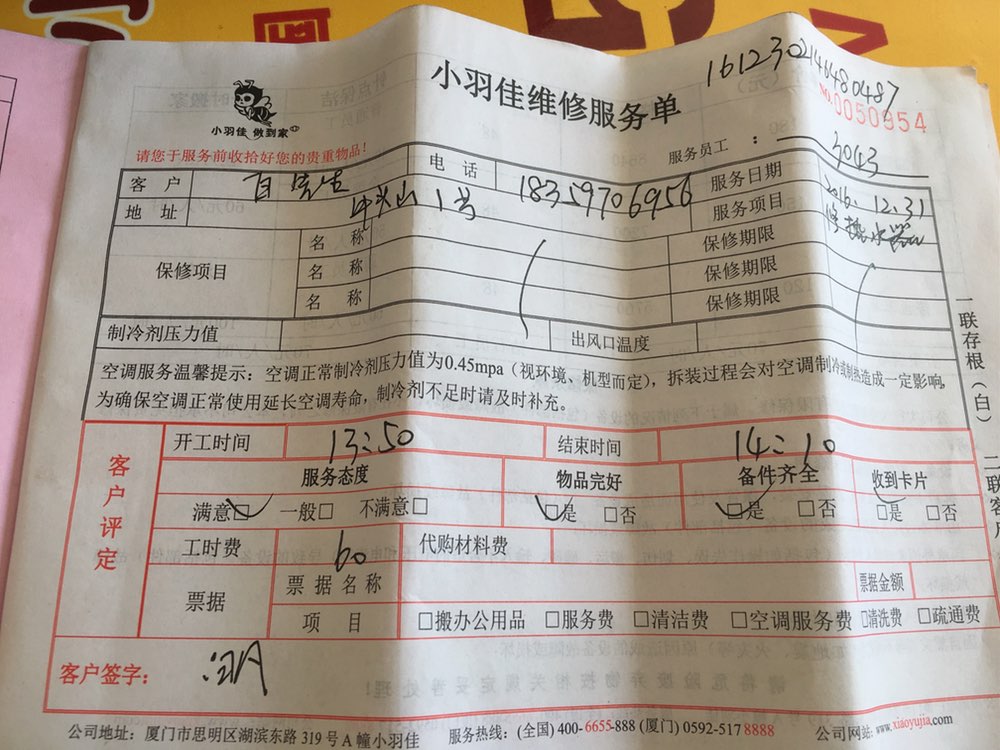 1612302146480487
小羽佳维修服务单
NO.0050954
小羽佳 做到家
请您于服务前收拾好您的贵重物品！
服务员工 ： 3043
客 户 电 话 18359706956 服务日期 2016.12.31
地 址 1号 服务项目 修热水器
保修项目 名 称 保修期限
名 称 保修期限
名 称 保修期限
制冷剂压力值 出风口温度
空调服务温馨提示：空调正常制冷剂压力值为0.45mpa（视环境、机型而定），拆装过程会对空调制冷或制热造成一定影响，
为确保空调正常使用延长空调寿命，制冷剂不足时请及时补充。
一联存根（白）
二联客户
客户评定
开工时间 13:50 结束时间 14:10
服务态度 物品完好 备件齐全 收到卡片
满意□ 一般□ 不满意□ □是 □否 □是 □否 □是 □否
工时费 60 代购材料费
票据 票据名称 票据金额
项 目 □搬办公用品 □服务费 □清洁费 □空调服务费 □清洗费 □疏通费
客户签字：
公司地址：厦门市思明区湖滨东路319号A幢小羽佳 服务热线：(全国) 400-6655-888 (厦门) 0592-517 8888 公司网站：www.xiaoyujia.com